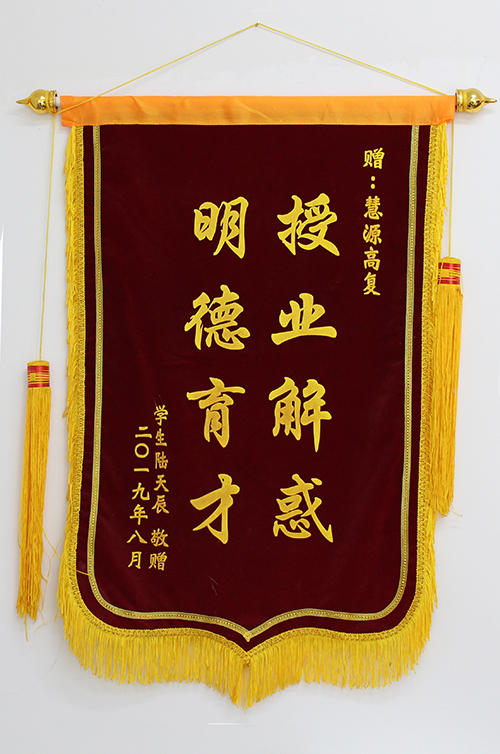 赠：慧源高复
授业解惑
明德育才
学生陆天辰 敬赠
二〇一九年八月